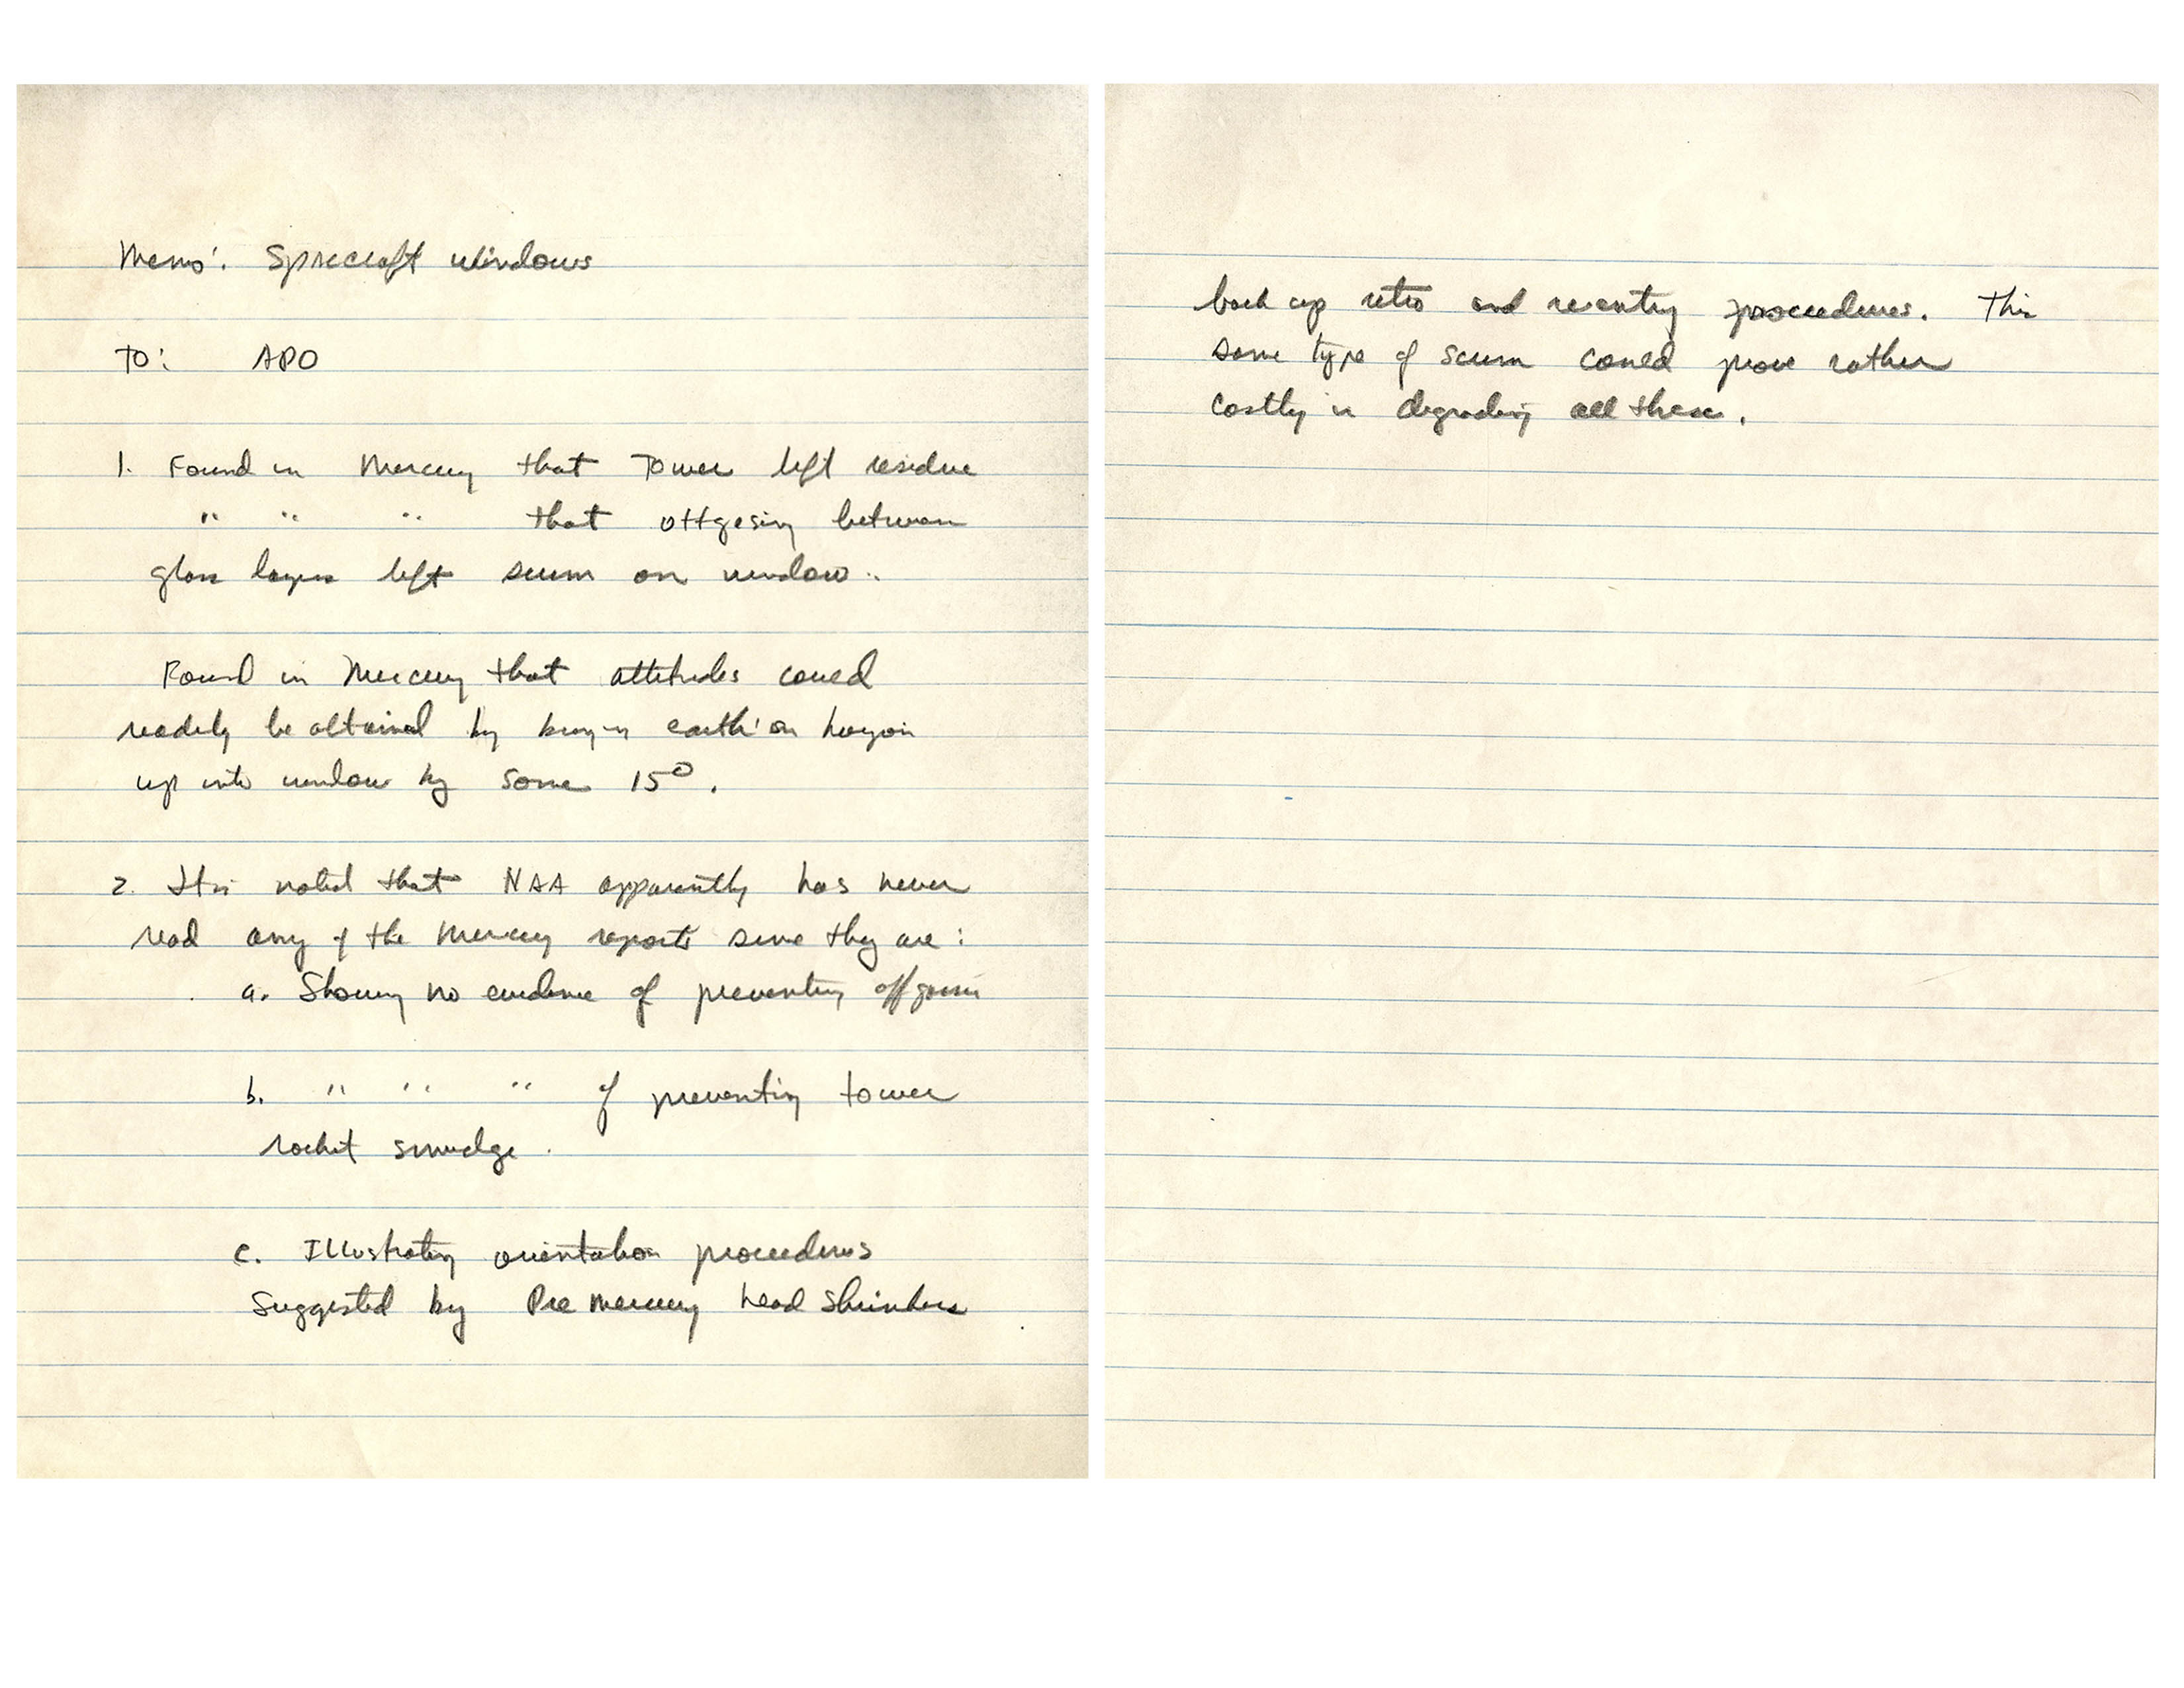 Memo: Spacecraft Windows
To: APO
1. Found in Mercury that Tower left residue
" " " that offgasing between
glass layers left scum on window..
Found in Mercury that attitudes could
readily be obtained by earth on
up into window by some 15°.
2. It is noted that NAA apparently has never
read any of the Mercury reports since they are:
a. Showing no evidence of preventing offgassing
b. " " " of preventing tower
rocket smudge.
c. Illustrating orientation procedures
Suggested by Pre Mercury head shrinkers
back up retro and reentry procedures. This
same type of scum could prove rather
costly in degrading all these.